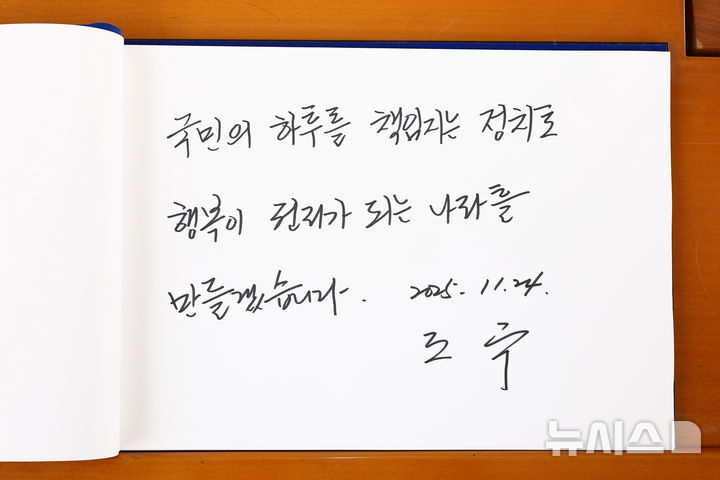 국민의 하루를 책임지는 정치로
행복이 권리가 되는 나라를
만들겠습니다. 2025. 11. 24.
조 국
뉴시스